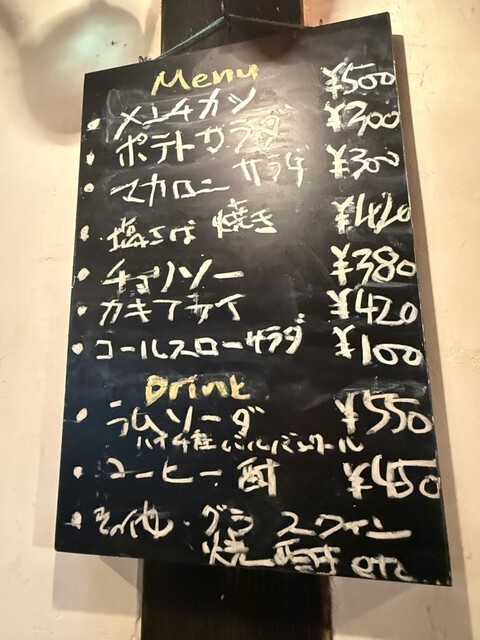 Menu
・メンチカツ ¥500
・ポテトサラダ ¥300
・マカロニサラダ ¥300
・塩さば焼き ¥420
・チョリソー ¥380
・カキフライ ¥420
・コールスローサラダ ¥100
Drink
・ラムソーダ ¥550
ハイチ産バルバンクール
・コーヒー酎 ¥450
・その他・グラスワイン
焼酎 etc...